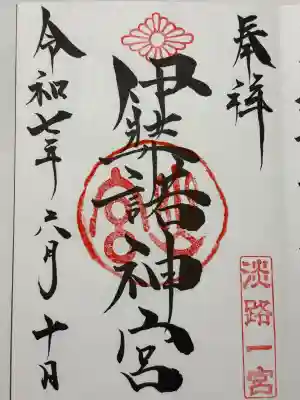 奉祥
淡路一宮
伊弉諾神宮
令和七年六月十日